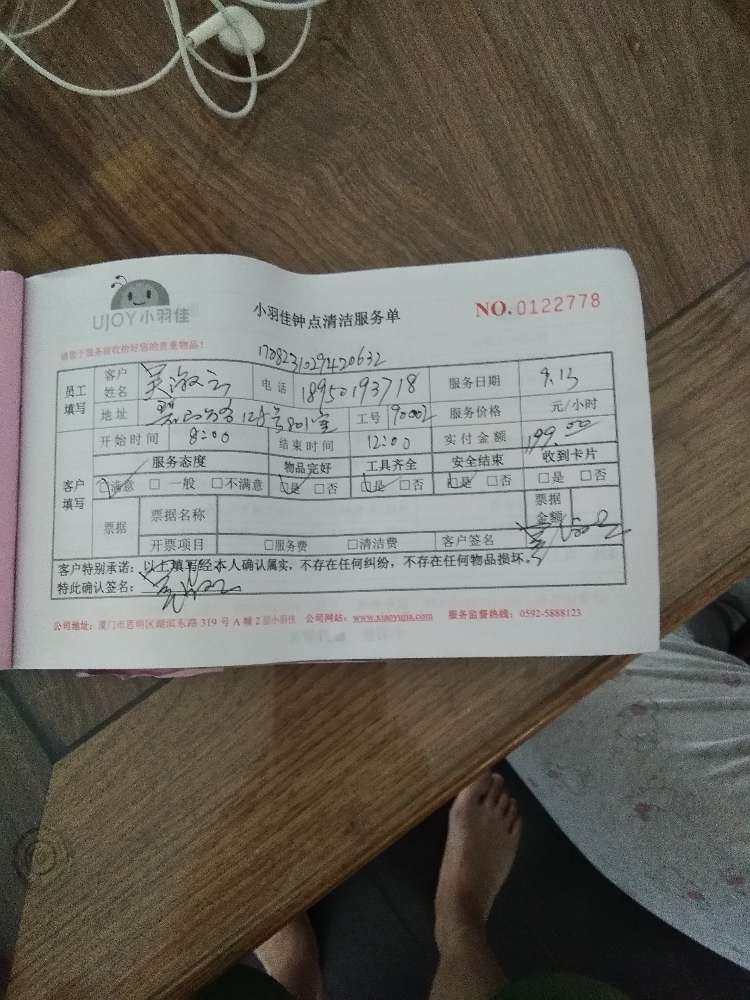 UJOY小羽佳
小羽佳钟点清洁服务单
NO.0122778
请您于服务前收拾好您的贵重物品！
1708231029420632
员工填写
客户姓名 吴淑云 电话 18950193718 服务日期 9.13
地址 128号801室 工号 90002 服务价格 元/小时
开始时间 8:00 结束时间 12:00 实付金额 199.00
客户填写
服务态度 物品完好 工具齐全 安全结束 收到卡片
☑满意 □一般 □不满意 ☑是 □否 ☑是 □否 ☑是 □否 □是 □否
票据 票据名称 票据金额
开票项目 □服务费 □清洁费 客户签名
客户特别承诺：以上填写经本人确认属实，不存在任何纠纷，不存在任何物品损坏。
特此确认签名：
公司地址：厦门市思明区湖滨东路319号A幢2层小羽佳 公司网站：www.xiaoyujia.com 服务监督热线：0592-5888123